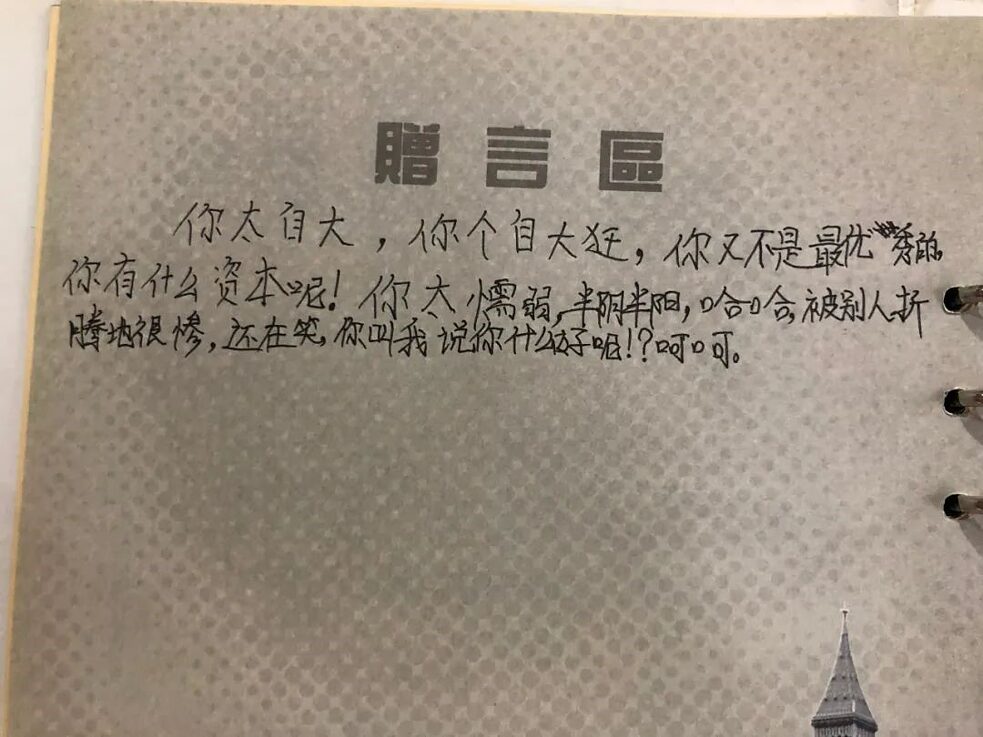 贈言區
你太自大，你个自大狂，你又不是最优秀的，
你有什么资本呢！你太懦弱，半阴半阳，哈哈，被别人折
腾地很惨，还在笑，你叫我说你什么好呢！？呵呵。